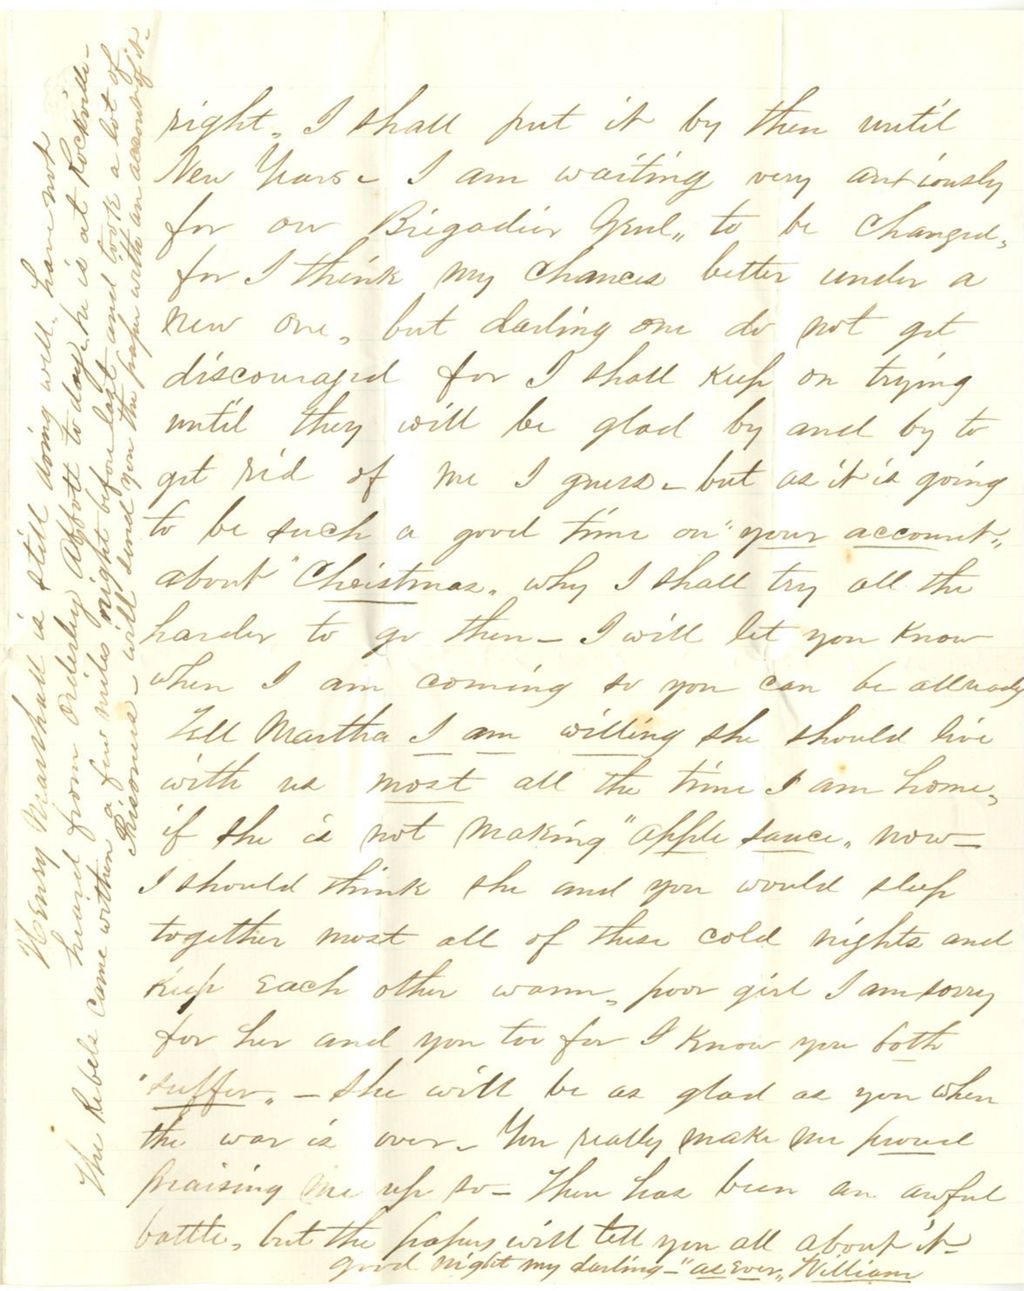 right. I shall put it by then until
New Years - I am waiting very anxiously
for our Brigadier Genl,, to be changed,
for I think my chances better under a
new one, but darling one do not get
discouraged for I shall keep on trying
until they will be glad by and by to
get rid of me I guess - but as it is going
to be such a good time on "your account,,
about "Christmas,, why I shall try all the
harder to go then - I will let you know
when I am coming so you can be allready
Tell Martha I am willing she should live
with us most all the time I am home,
if she is not making "apple sauce,, now -
I should think she and you would sleep
together most all of these cold nights and
keep each other warm, poor girl I am sorry
for her and you too for I know you both
"suffer,, - she will be as glad as you when
the war is over - You really make me proud
praising me up so - There has been an awful
battle, but the papers will tell you all about it -
good night my darling - "as ever,, William
Henry Marshall is still doing well, have not
heard from Orderly Abbott to day, he is at Rockville -
The Rebels came within a few miles night before last and took a lot of
Prisoners - will send you the paper with an account of it -